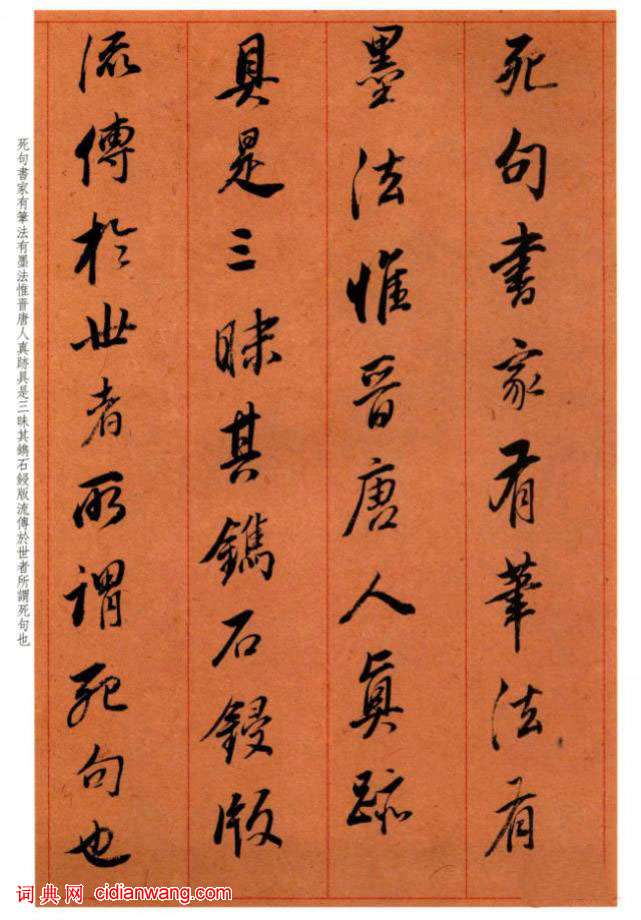 死句書家有筆法有
墨法惟晋唐人真跡
具是三昧其鐫石鋟版
流傳於世者所謂死句也
死句書家有筆法有墨法惟晋唐人真跡具是三昧其鐫石鋟版流傳於世者所謂死句也
词典网 cidianwang.com